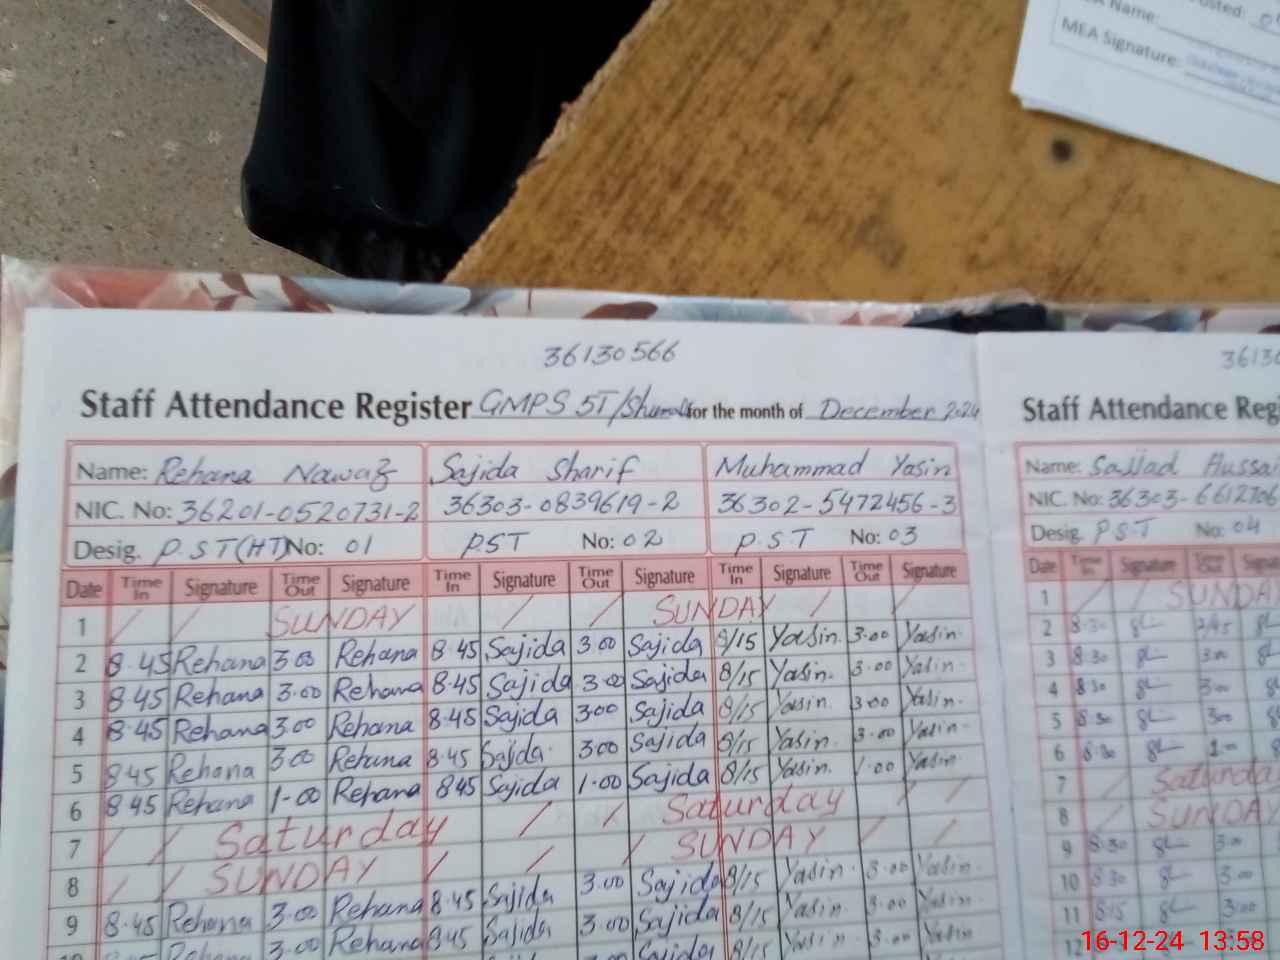 Posted:
MEA Name:
MEA Signature:
36130566
Staff Attendance Register GMPS 5T/ for the month of December 2024
Name: Rehana Nawaz Sajida Sharif Muhammad Yasin
NIC. No: 36201-0520731-2 36303-0839619-2 36302-5472456-3
Desig. P.S.T(HT) No: 01 PST No: 02 P.S.T No: 03
Date Time In Signature Time Out Signature Time In Signature Time Out Signature Time In Signature Time Out Signature
1 / / SUNDAY / / SUNDAY / /
2 8.45 Rehana 3.00 Rehana 8.45 Sajida 3.00 Sajida 8/15 Yasin. 3.00 Yasin.
3 8.45 Rehana 3.00 Rehana 8.45 Sajida 3.00 Sajida 8/15 Yasin. 3.00 Yasin.
4 8.45 Rehana 3.00 Rehana 8.45 Sajida 3.00 Sajida 8/15 Yasin. 3.00 Yasin.
5 8.45 Rehana 3.00 Rehana 8.45 Sajida. 3.00 Sajida 8/15 Yasin. 3.00 Yasin.
6 8.45 Rehana 1-00 Rehana 8.45 Sajida 1.00 Sajida 8/15 Yasin. 1.00 Yasin.
7 / / Saturday / / Saturday / /
8 / / SUNDAY / / / SUNDAY / /
9 8.45 Rehana 3.00 Rehana 8.45 Sajida 3.00 Sajida 8/15 Yasin. 3.00 Yasin.
3.00 Rehana 8.45 Sajida 3.00 Sajida 8/15 Yasin. 3.00 Yasin
Sajida 8/15 Yasin. 3.00 Yasin
3613
Staff Attendance Reg
Name: Sajjad Hussai
NIC. No: 36303-661270
Desig. P.S.T No: 04
Date Time In Signature Time Out
1 / / SUNDA
2 8.30 2/45
3 8.30 3.00
4 8.30 3.00
5 8.30 3.00
6 8.30 1.00
7 / Saturda
8 / SUNDA
9 8.30 3.00
10 8.30 3.00
11 8.15 3.00
12
16-12-24 13:58